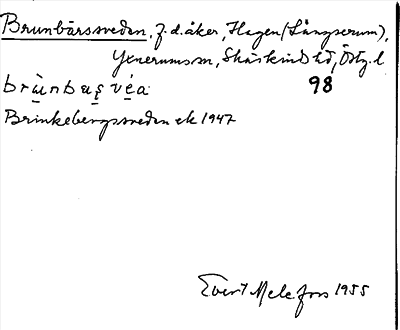 Brunbärssvedan, f.d. åker, Hagen (Långserum),
Yxnerums sn, Skärkinds hd, Östg. l.
brùnbaṣvéa 98
Brinkebergssvedan ek 1947
Evert Melefors 1955